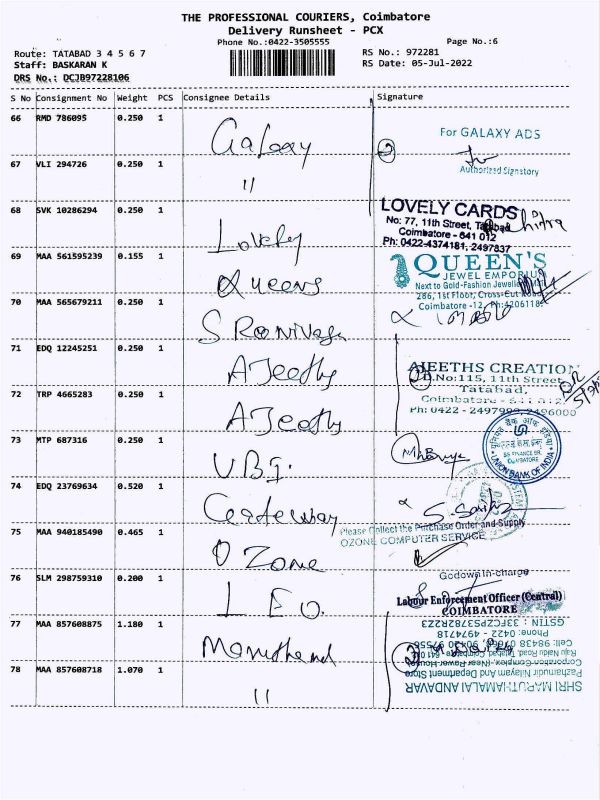 THE PROFESSIONAL COURIERS, Coimbatore
Delivery Runsheet - PCX
Phone No.:0422-3505555
Page No.:6
Route: TATABAD 3 4 5 6 7
RS No.: 972281
Staff: BASKARAN K
RS Date: 05-Jul-2022
DRS No.: DCJB97228106
S No Consignment No Weight PCS Consignee Details Signature
66 RMD 786095 0.250 1 Galaxy
For GALAXY ADS
Authorised Signatory
67 VLI 294726 0.250 1 "
68 SVK 10286294 0.250 1 Lovely
LOVELY CARDS
No: 77, 11th Street, Tatabad
Coimbatore - 641 012
Ph: 0422-4374181, 2497837
Chitra
69 MAA 561595239 0.155 1 Queens
QUEEN'S
JEWEL EMPORIUM
Next to Gold-Fashion Jewellery
286, 1st Floor, Cross-Cut Road
Coimbatore -12.
70 MAA 565679211 0.250 1
71 EDQ 12245251 0.250 1 AJeeths
AJEETHS CREATION
D.No:115, 11th Street
Tatabad,
Coimbatore - 641 012
Ph: 0422 - 2497999, 2496000
72 TRP 4665283 0.250 1 AJeeths
73 MTP 687316 0.250 1 UBI.
UNION BANK OF INDIA
COIMBATORE
74 EDQ 23769634 0.520 1
75 MAA 940185490 0.465 1 OZone
Please Collect the Purchase Order and Supply
OZONE COMPUTER SERVICE
76 SLM 298759310 0.200 1 LEO.
Godown In-charge
Labour Enforcement Officer (Central)
COIMBATORE
77 MAA 857608875 1.180 1
78 MAA 857608718 1.070 1 "
SHRI MARUTHAMALAI ANDAVAR
Pazhamudir Nilayam And Department Store
Corporation Complex, (Near Power House)
Phone: 0422 - 4974718
GSTIN : 33FCZPS3782R2Z3